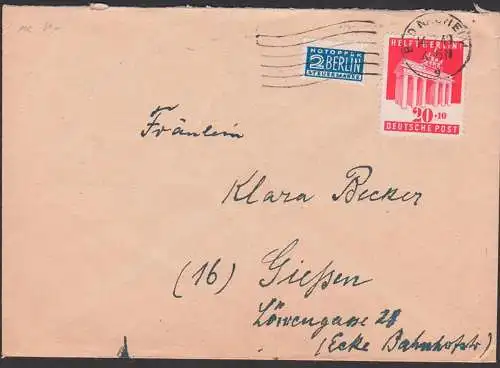 NOTOPFER
2 BERLIN
STEUERMARKE
HELFT BERLIN
20+10
DEUTSCHE POST
Fräulein
Klara Becker
(16) Gießen
Löwengasse 28
(Ecke Bahnhofstr)